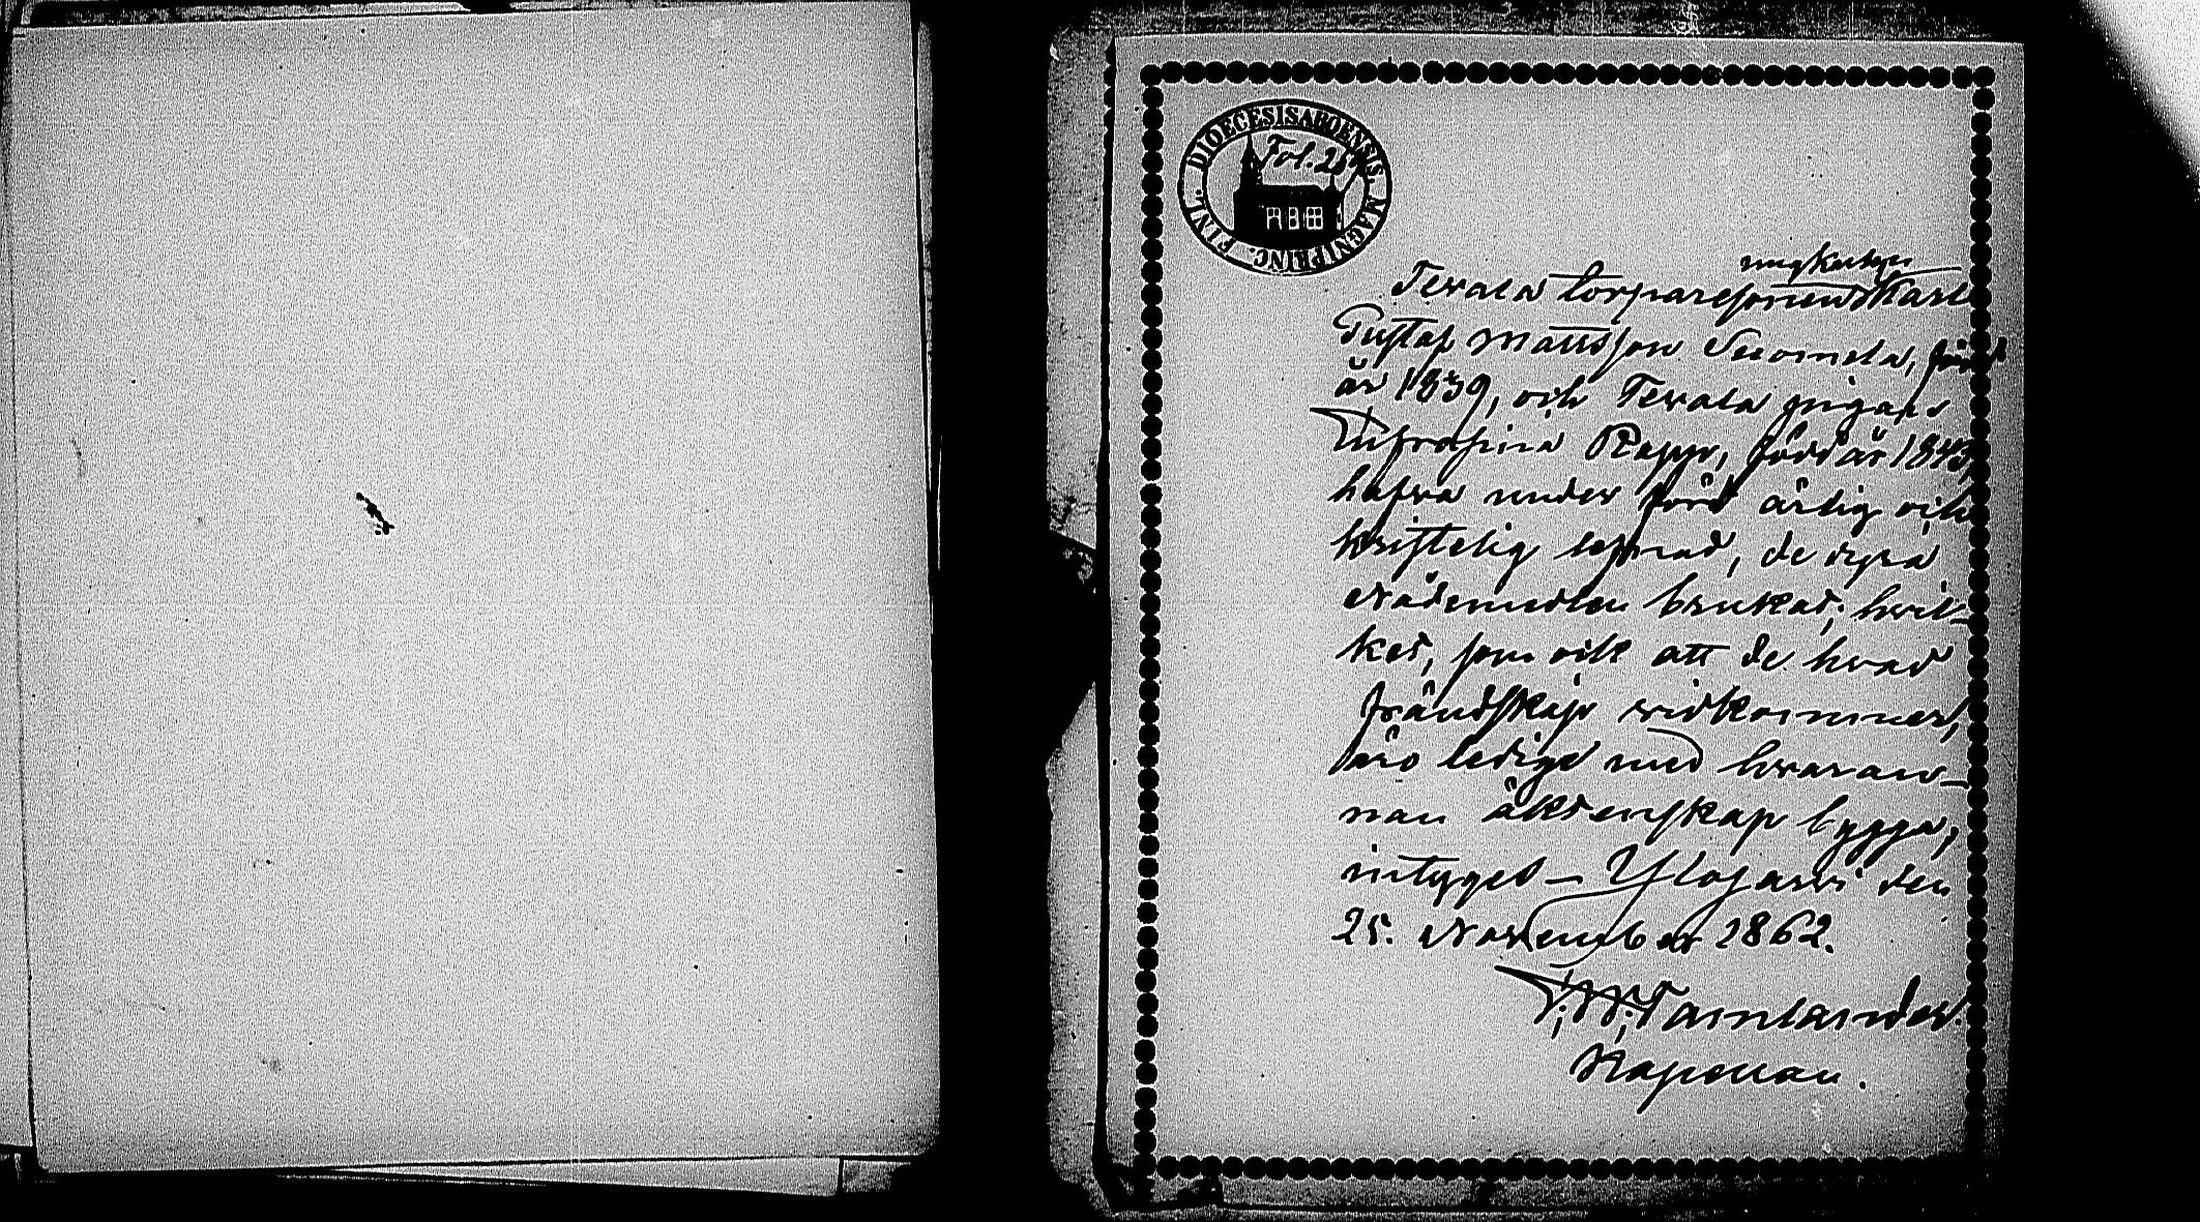 DIOECESIS ABOENSIS. MAGNI PRINC. FINL.
Fol. 25
ungkarlen
Terala torparesonen Karl
Gustaf Mattsson Suomela, född
år 1839, och Terala pigan
Eufrosina Rapp, född år 1843,
hafva under förd ärlig och
kristelig lefnad, de dyra
nådemedlen brukat; hvil-
ket, som ock att de hvad
frändskap vidkommer,
äro lediga med hvaran-
nan äktenskap bygga,
intygas – Ylöjärvi den
25. November 1862.
Kapellan.